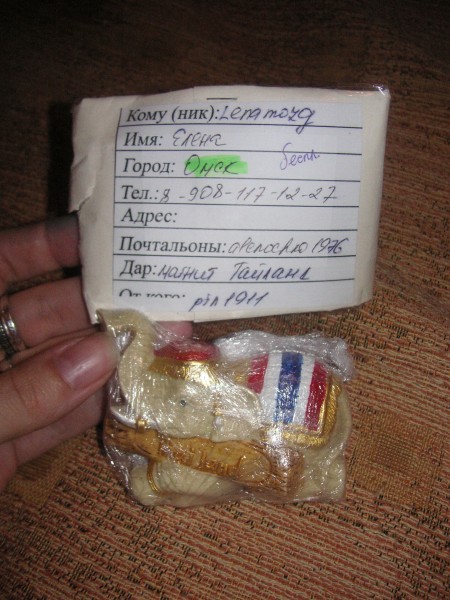 Кому (ник): Lenamozg
Имя: Елена
Город: Омск беспл
Тел.: 8-908-117-12-27
Адрес:
Почтальоны: 1976
Дар: магнит Тайланд
От кого: pin1911